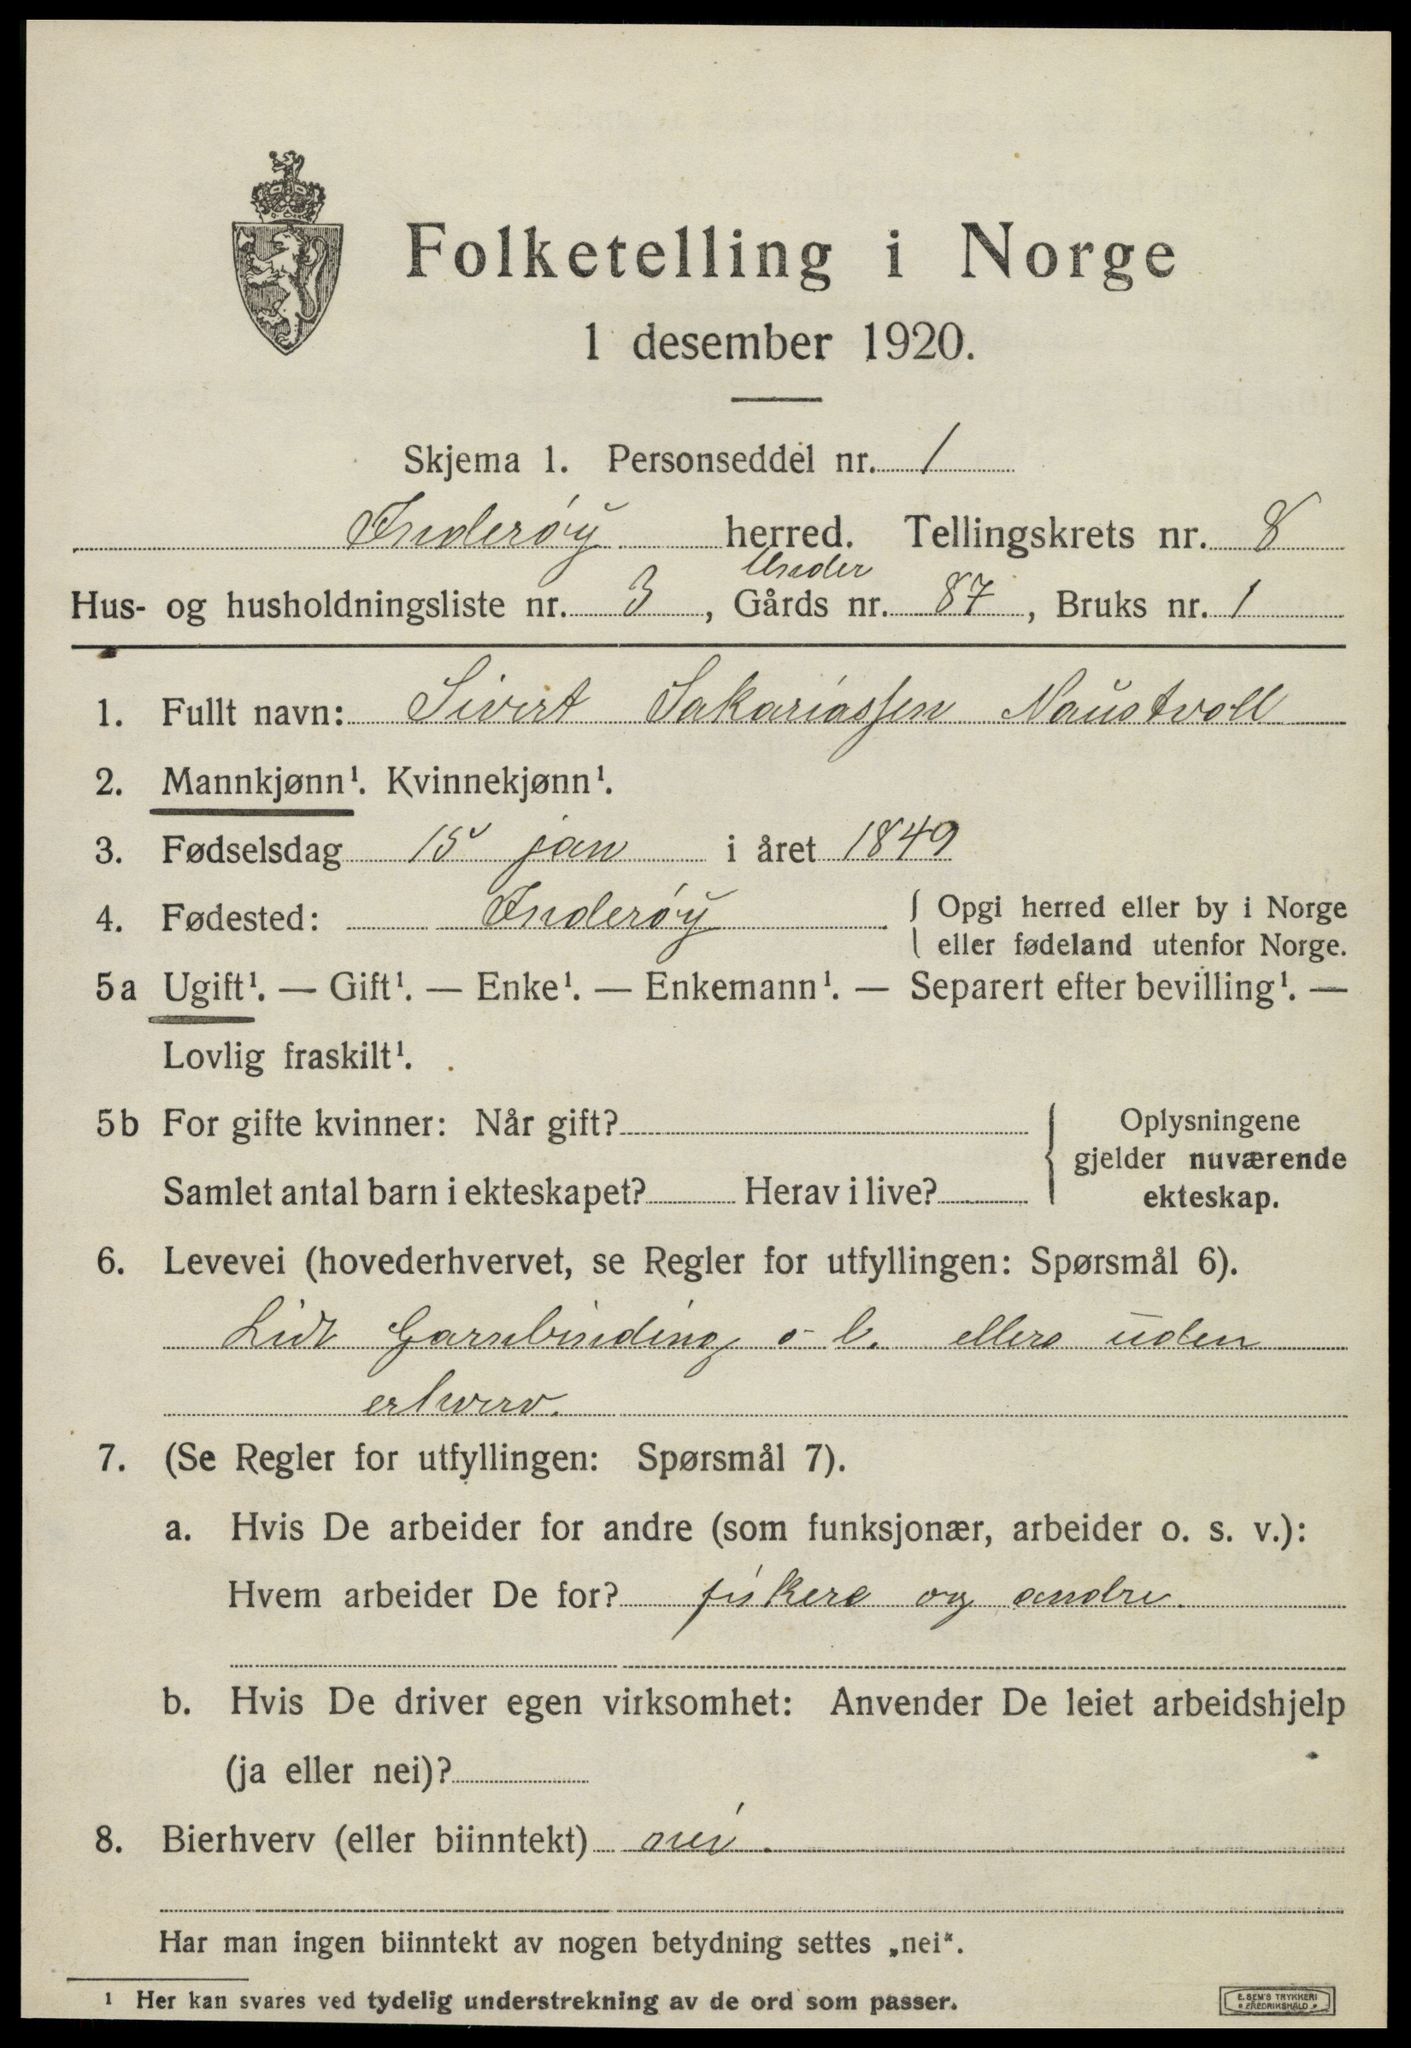 Folketelling i Norge
1 desember 1920.
Skjema 1. Personseddel nr. 1
Inderøy herred. Tellingskrets nr. 8
Under
Hus- og husholdningsliste nr. 3, Gårds nr. 87, Bruks nr. 1
1. Fullt navn: Sivert Sakariassen Naustvoll
2. Mannkjønn¹. Kvinnekjønn¹.
3. Fødselsdag 15 jan i året 1849
4. Fødested: Inderøy { Opgi herred eller by i Norge
eller fødeland utenfor Norge.
5a Ugift¹. — Gift¹. — Enke¹. — Enkemann¹. — Separert efter bevilling¹. —
Lovlig fraskilt¹.
5b For gifte kvinner: Når gift? { Oplysningene
gjelder nuværende
Samlet antal barn i ekteskapet? Herav i live? ekteskap.
6. Levevei (hovederhvervet, se Regler for utfyllingen: Spørsmål 6).
Lidt Garnbinding o l. ellers uden
erhverv.
7. (Se Regler for utfyllingen: Spørsmål 7).
a. Hvis De arbeider for andre (som funksjonær, arbeider o. s. v.):
Hvem arbeider De for? fiskere og andre.
b. Hvis De driver egen virksomhet: Anvender De leiet arbeidshjelp
(ja eller nei)?
8. Bierhverv (eller biinntekt) nei.
Har man ingen biinntekt av nogen betydning settes „nei“.
¹ Her kan svares ved tydelig understrekning av de ord som passer.
E. SEM'S TRYKKERI
FREDRIKSHALD